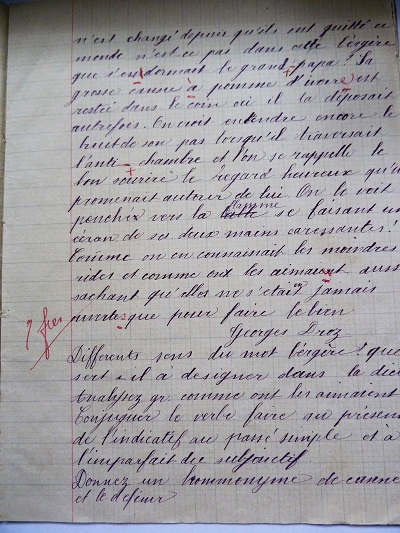 n'est changé depuis qu'ils ont quitté ce
monde n'est ce pas dans cette bergère
que s'endormait le grand-papa? Sa
grosse canne à pomme d'ivoire est
restée dans le coin où il la déposait
autrefois. On croit entendre encore le
bruit de son pas lorsqu'il traversait
l'anti-chambre et l'on se rappelle le
bon sourire le regard heureux qu'il
promenait autour de lui On le voit
penchér vers la flamme se faisant un
écran de ses deux mains caressantes!
Comme on en connaissait les moindres
rides et comme on les aimaient aussi
sachant qu'elles ne s'etait jamais
ouvertes que pour faire le bien
7 ftes
Georges Droz
Differents sens du mot bergère! que
sert-il à designer dans la dictée
Analysez gr. comme ont les aimaient
Conjuguer le verbe faire au présent
de l'indicatif au passé simple et à
l'imparfait du subjonctif
Donnez un hommonyme de canne
et le définir